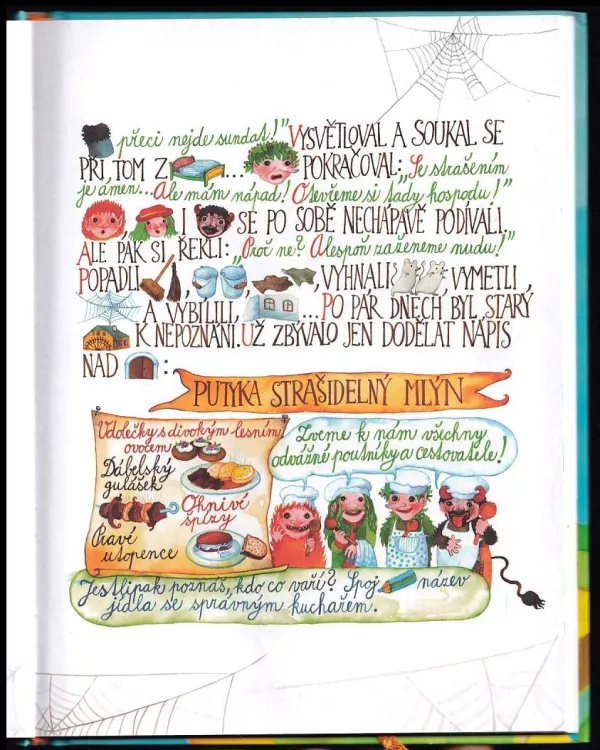 přeci nejde sundat!" VYSVĚTLOVAL A SOUKAL SE
PŘI TOM Z ... POKRAČOVAL: „Se strašením
je ámen... Ale mám nápad! Otevřeme si tady hospodu!"
I SE PO SOBĚ NECHÁPAVĚ PODÍVALI.
ALE PAK SI ŘEKLI: „Proč ne? Alespoň zaženeme nudu!"
POPADLI , , , VYHNALI VYMETLI ,
A VYBÍLILI, ... PO PÁR DNECH BYL STARÝ
K NEPOZNÁNÍ. UŽ ZBÝVALO JEN DODĚLAT NÁPIS
NAD :
PUTYKA STRAŠIDELNÝ MLÝN
Vdolečky s divokým lesním
ovocem
Ďábelský
gulášek
Ohnivé
špízy
Pravé
utopence
Zveme k nám všechny
odvážné poutníky a cestovatele!
Jestlipak poznáš, kdo co vaří? Spoj název
jídla se správným kuchařem.